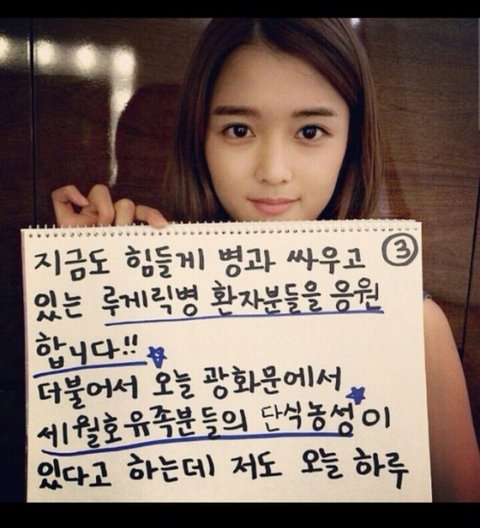 지금도 힘들게 병과 싸우고 ③
있는 루게릭병 환자분들을 응원
합니다!!
더불어서 오늘 광화문에서
세월호유족분들의 단식농성이
있다고 하는데 저도 오늘 하루